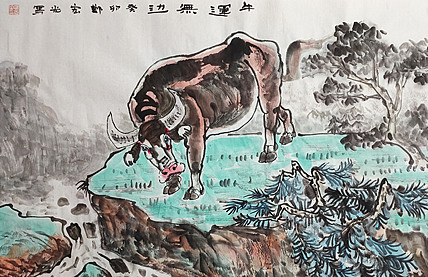 牛運無边癸卯鄭宏光写